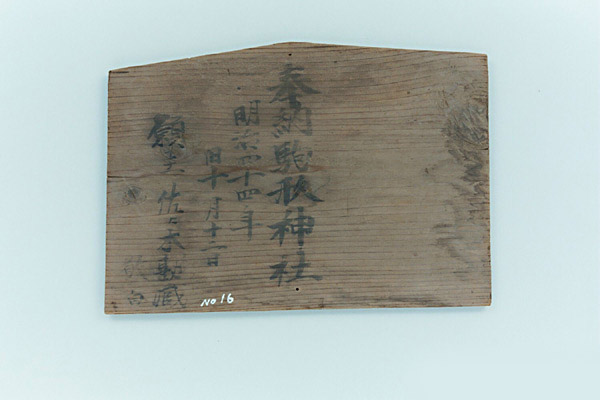 奉納駒形神社
明治四十四年
旧十月十二日
願主 佐々木勘蔵
敬白
No 16